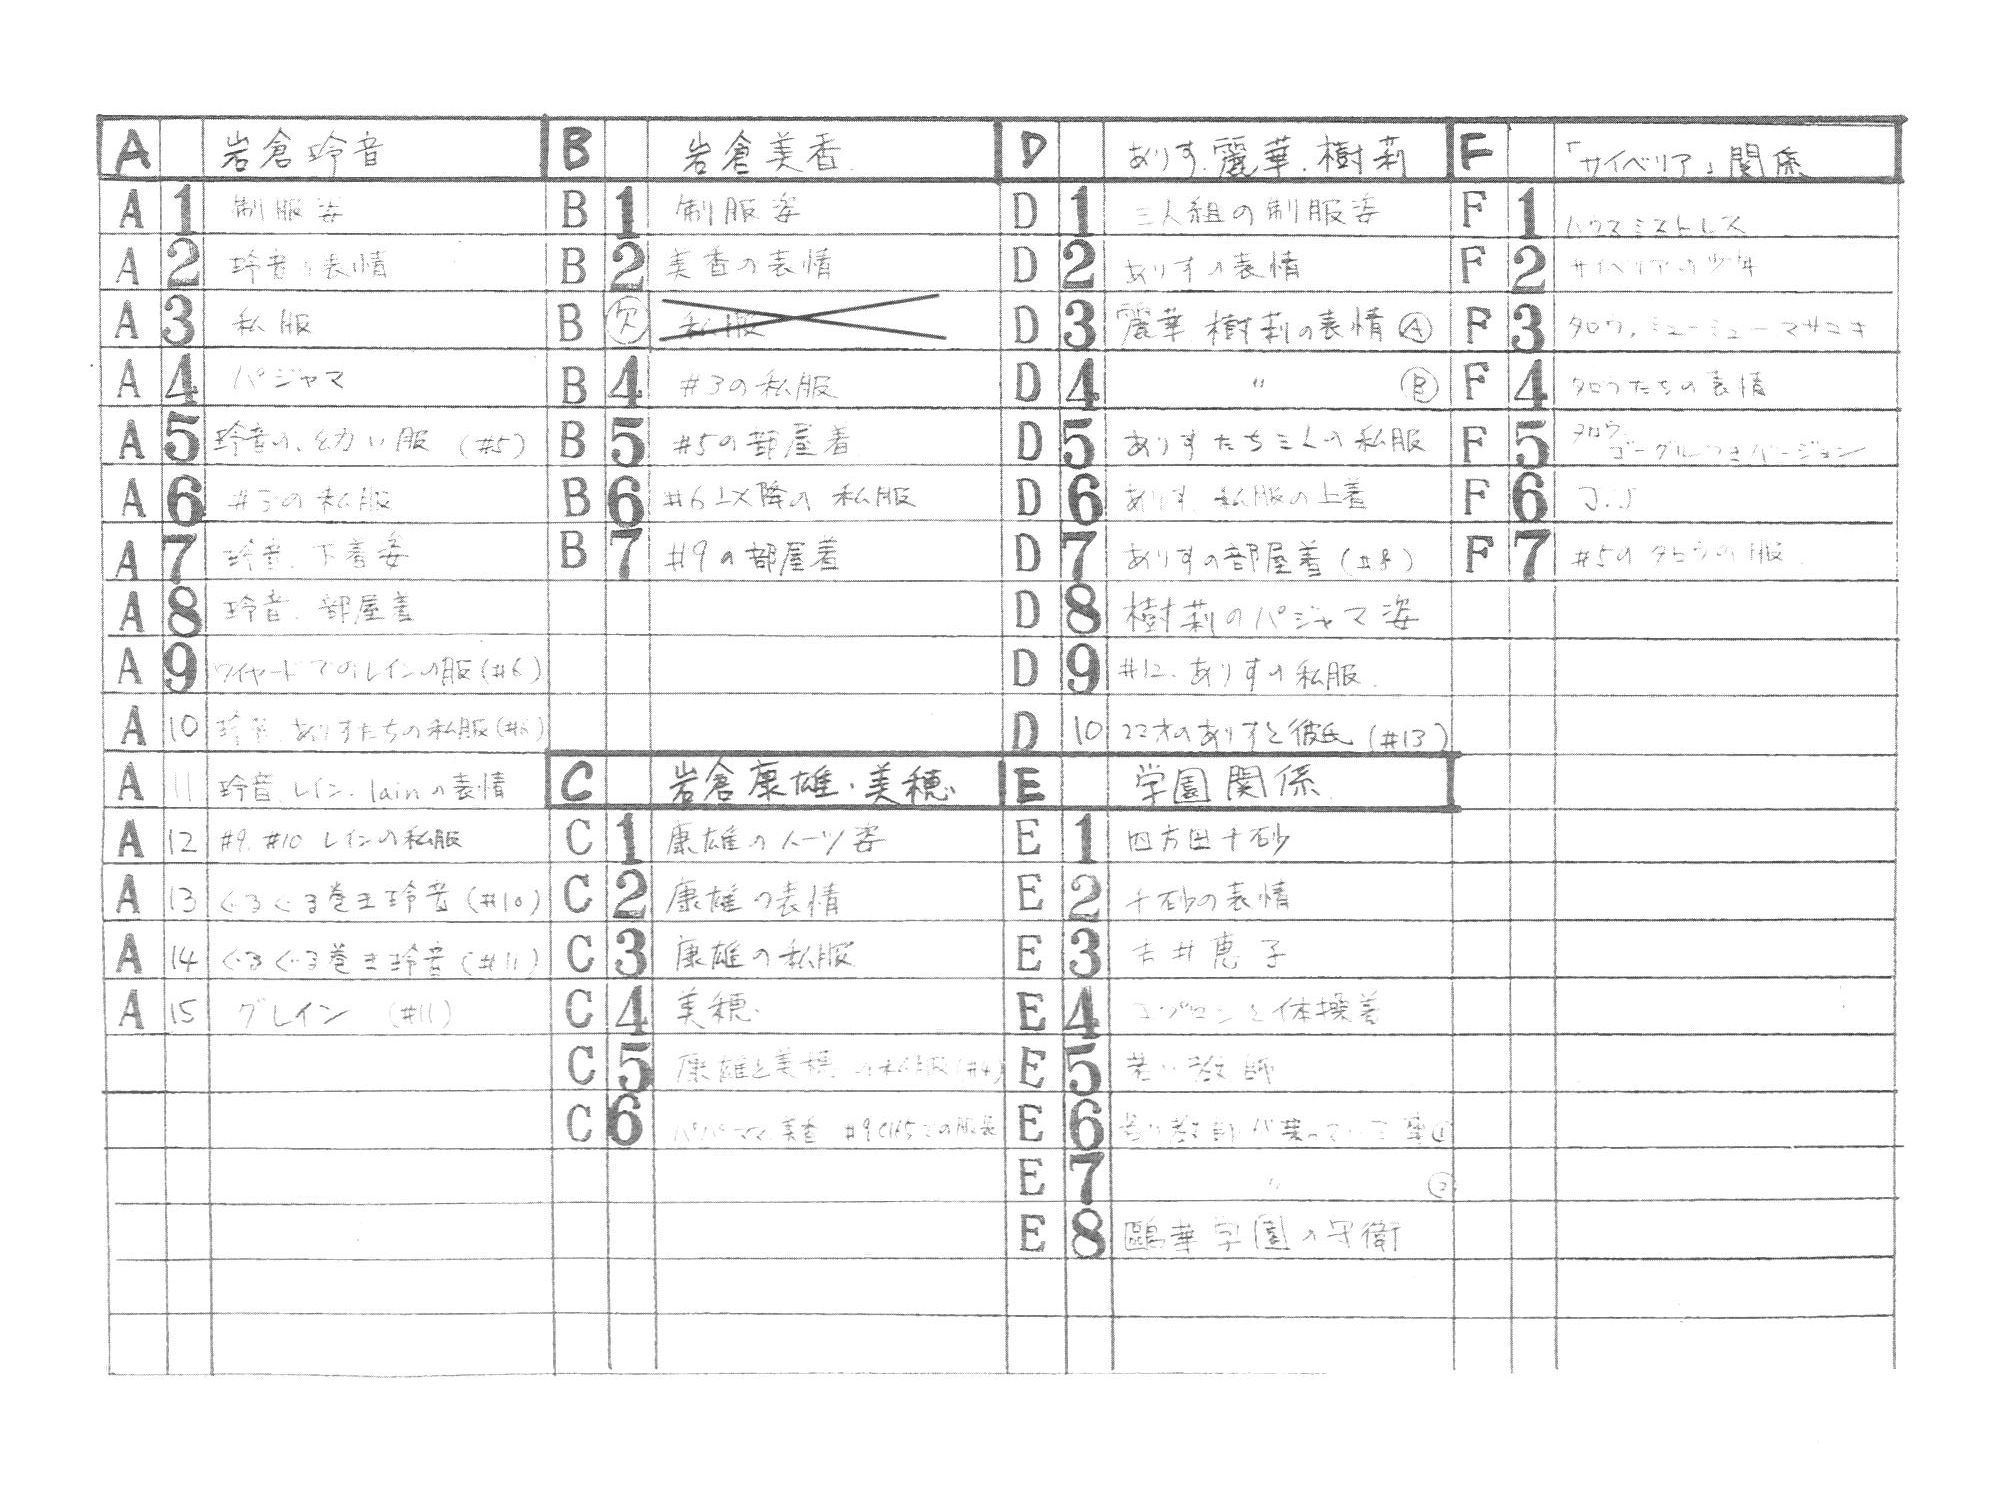 A 岩倉玲音
A 1 制服姿
A 2 玲音の表情
A 3 私服
A 4 パジャマ
A 5 玲音の、幼い服 (#5)
A 6 #3の私服
A 7 玲音、下着姿
A 8 玲音、部屋着
A 9 ワイヤードでのレインの服(#6)
A 10 玲音、ありすたちの私服(#6)
A 11 玲音、レイン、lainの表情
A 12 #9、#10 レインの私服
A 13 ぐるぐる巻き玲音 (#10)
A 14 ぐるぐる巻き玲音 (#11)
A 15 グレイン (#11)
B 岩倉美香
B 1 制服姿
B 2 美香の表情
B 欠 私服
B 4 #3の私服
B 5 #5の部屋着
B 6 #6以降の私服
B 7 #9の部屋着
C 岩倉康雄・美穂
C 1 康雄のスーツ姿
C 2 康雄の表情
C 3 康雄の私服
C 4 美穂
C 5 康雄と美穂の私服(#4)
C 6 パパ ママ、美香 #9 での服装
D ありす、麗華、樹莉
D 1 三人組の制服姿
D 2 ありすの表情
D 3 麗華、樹莉の表情 Ⓐ
D 4 〃 Ⓑ
D 5 ありすたち三人の私服
D 6 ありす、私服の上着
D 7 ありすの部屋着 (#8)
D 8 樹莉のパジャマ姿
D 9 #12、ありすの私服
D 10 22才のありすと彼氏 (#13)
E 学園関係
E 1 四方田千砂
E 2 千砂の表情
E 3 吉井恵子
E 4 エプロンと体操着
E 5 若い教師
E 6 若い教師 ①
E 7 〃 ②
E 8 鷗華学園の守衛
F 「サイベリア」関係
F 1 ハウスミストレス
F 2 サイベリアの少年
F 3 タロウ、ミューミュー マサユキ
F 4 タロウたちの表情
F 5 タロウ、ゴーグルつきバージョン
F 6 J.J
F 7 #5のタロウの服